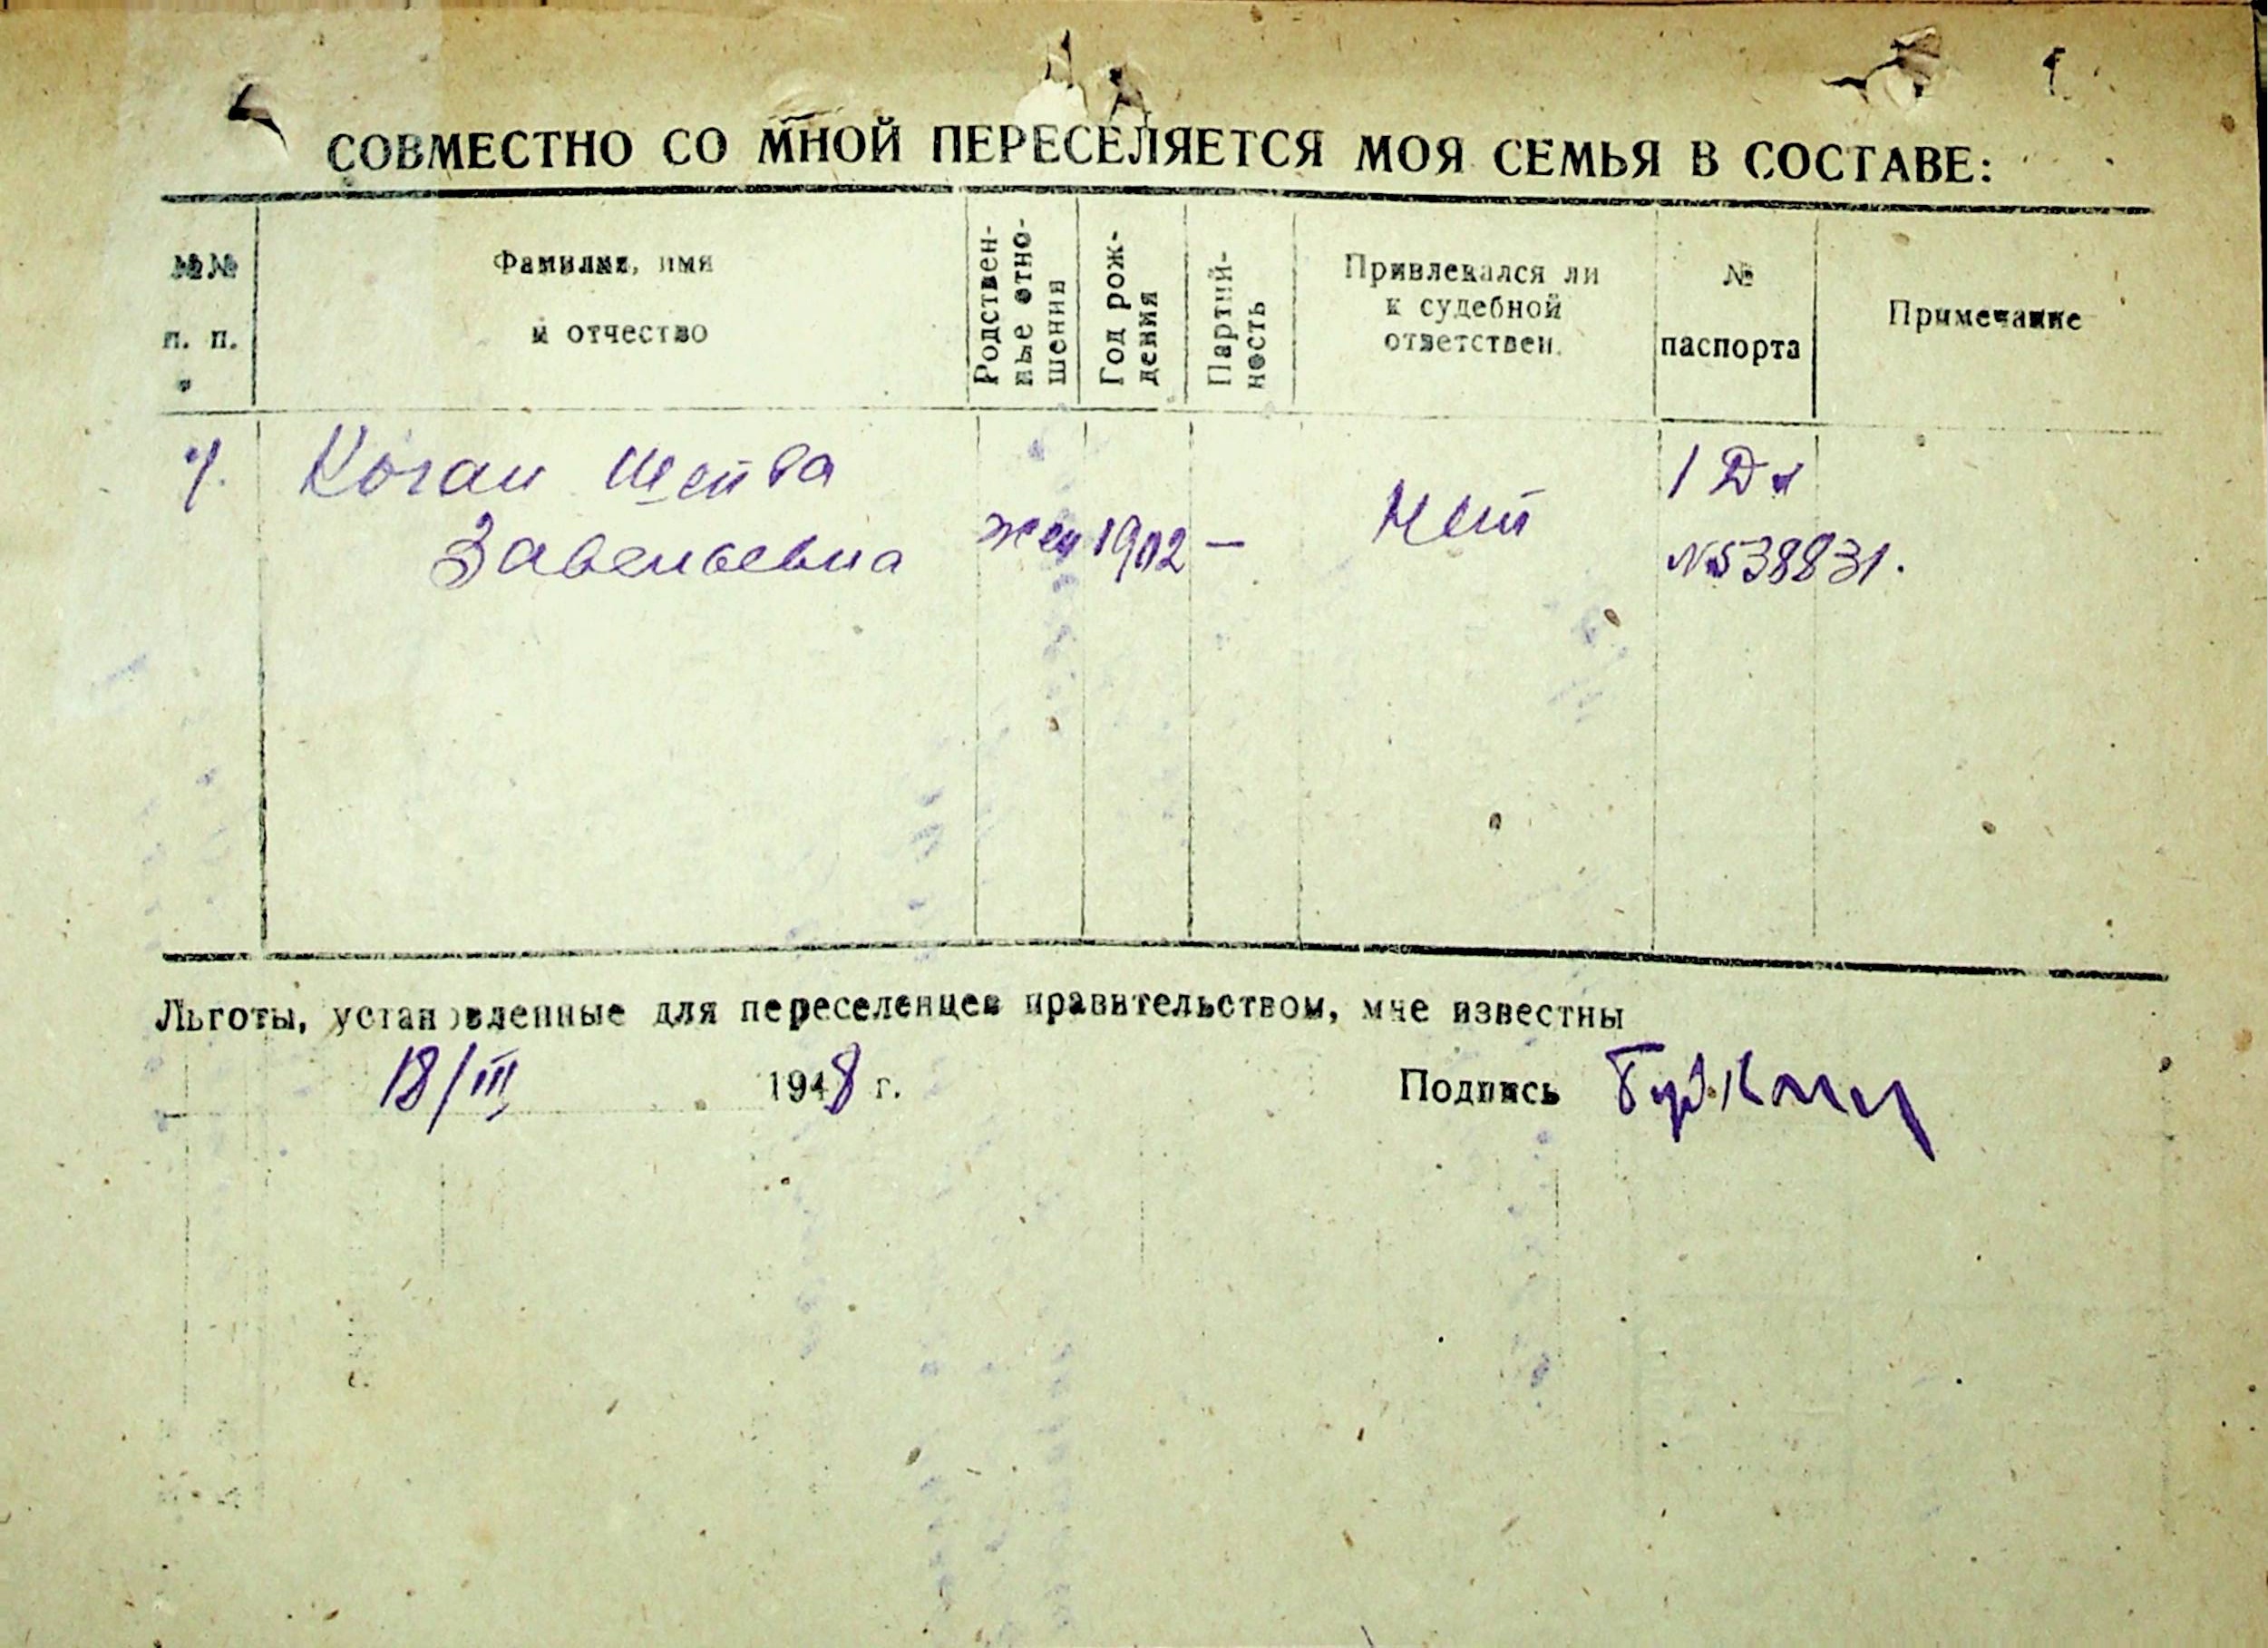 СОВМЕСТНО СО МНОЙ ПЕРЕСЕЛЯЕТСЯ МОЯ СЕМЬЯ В СОСТАВЕ:
№№ п. п.
Фамилия, имя и отчество
Родственные отношения
Год рождения
Партийность
Привлекался ли к судебной ответствен.
№ паспорта
Примечание
1. Коган Шейва
Завельевна
жен 1902 — нет
1 Дя
№538831.
Льготы, установленные для переселенцев правительством, мне известны
18/III 1948 г. Подпись